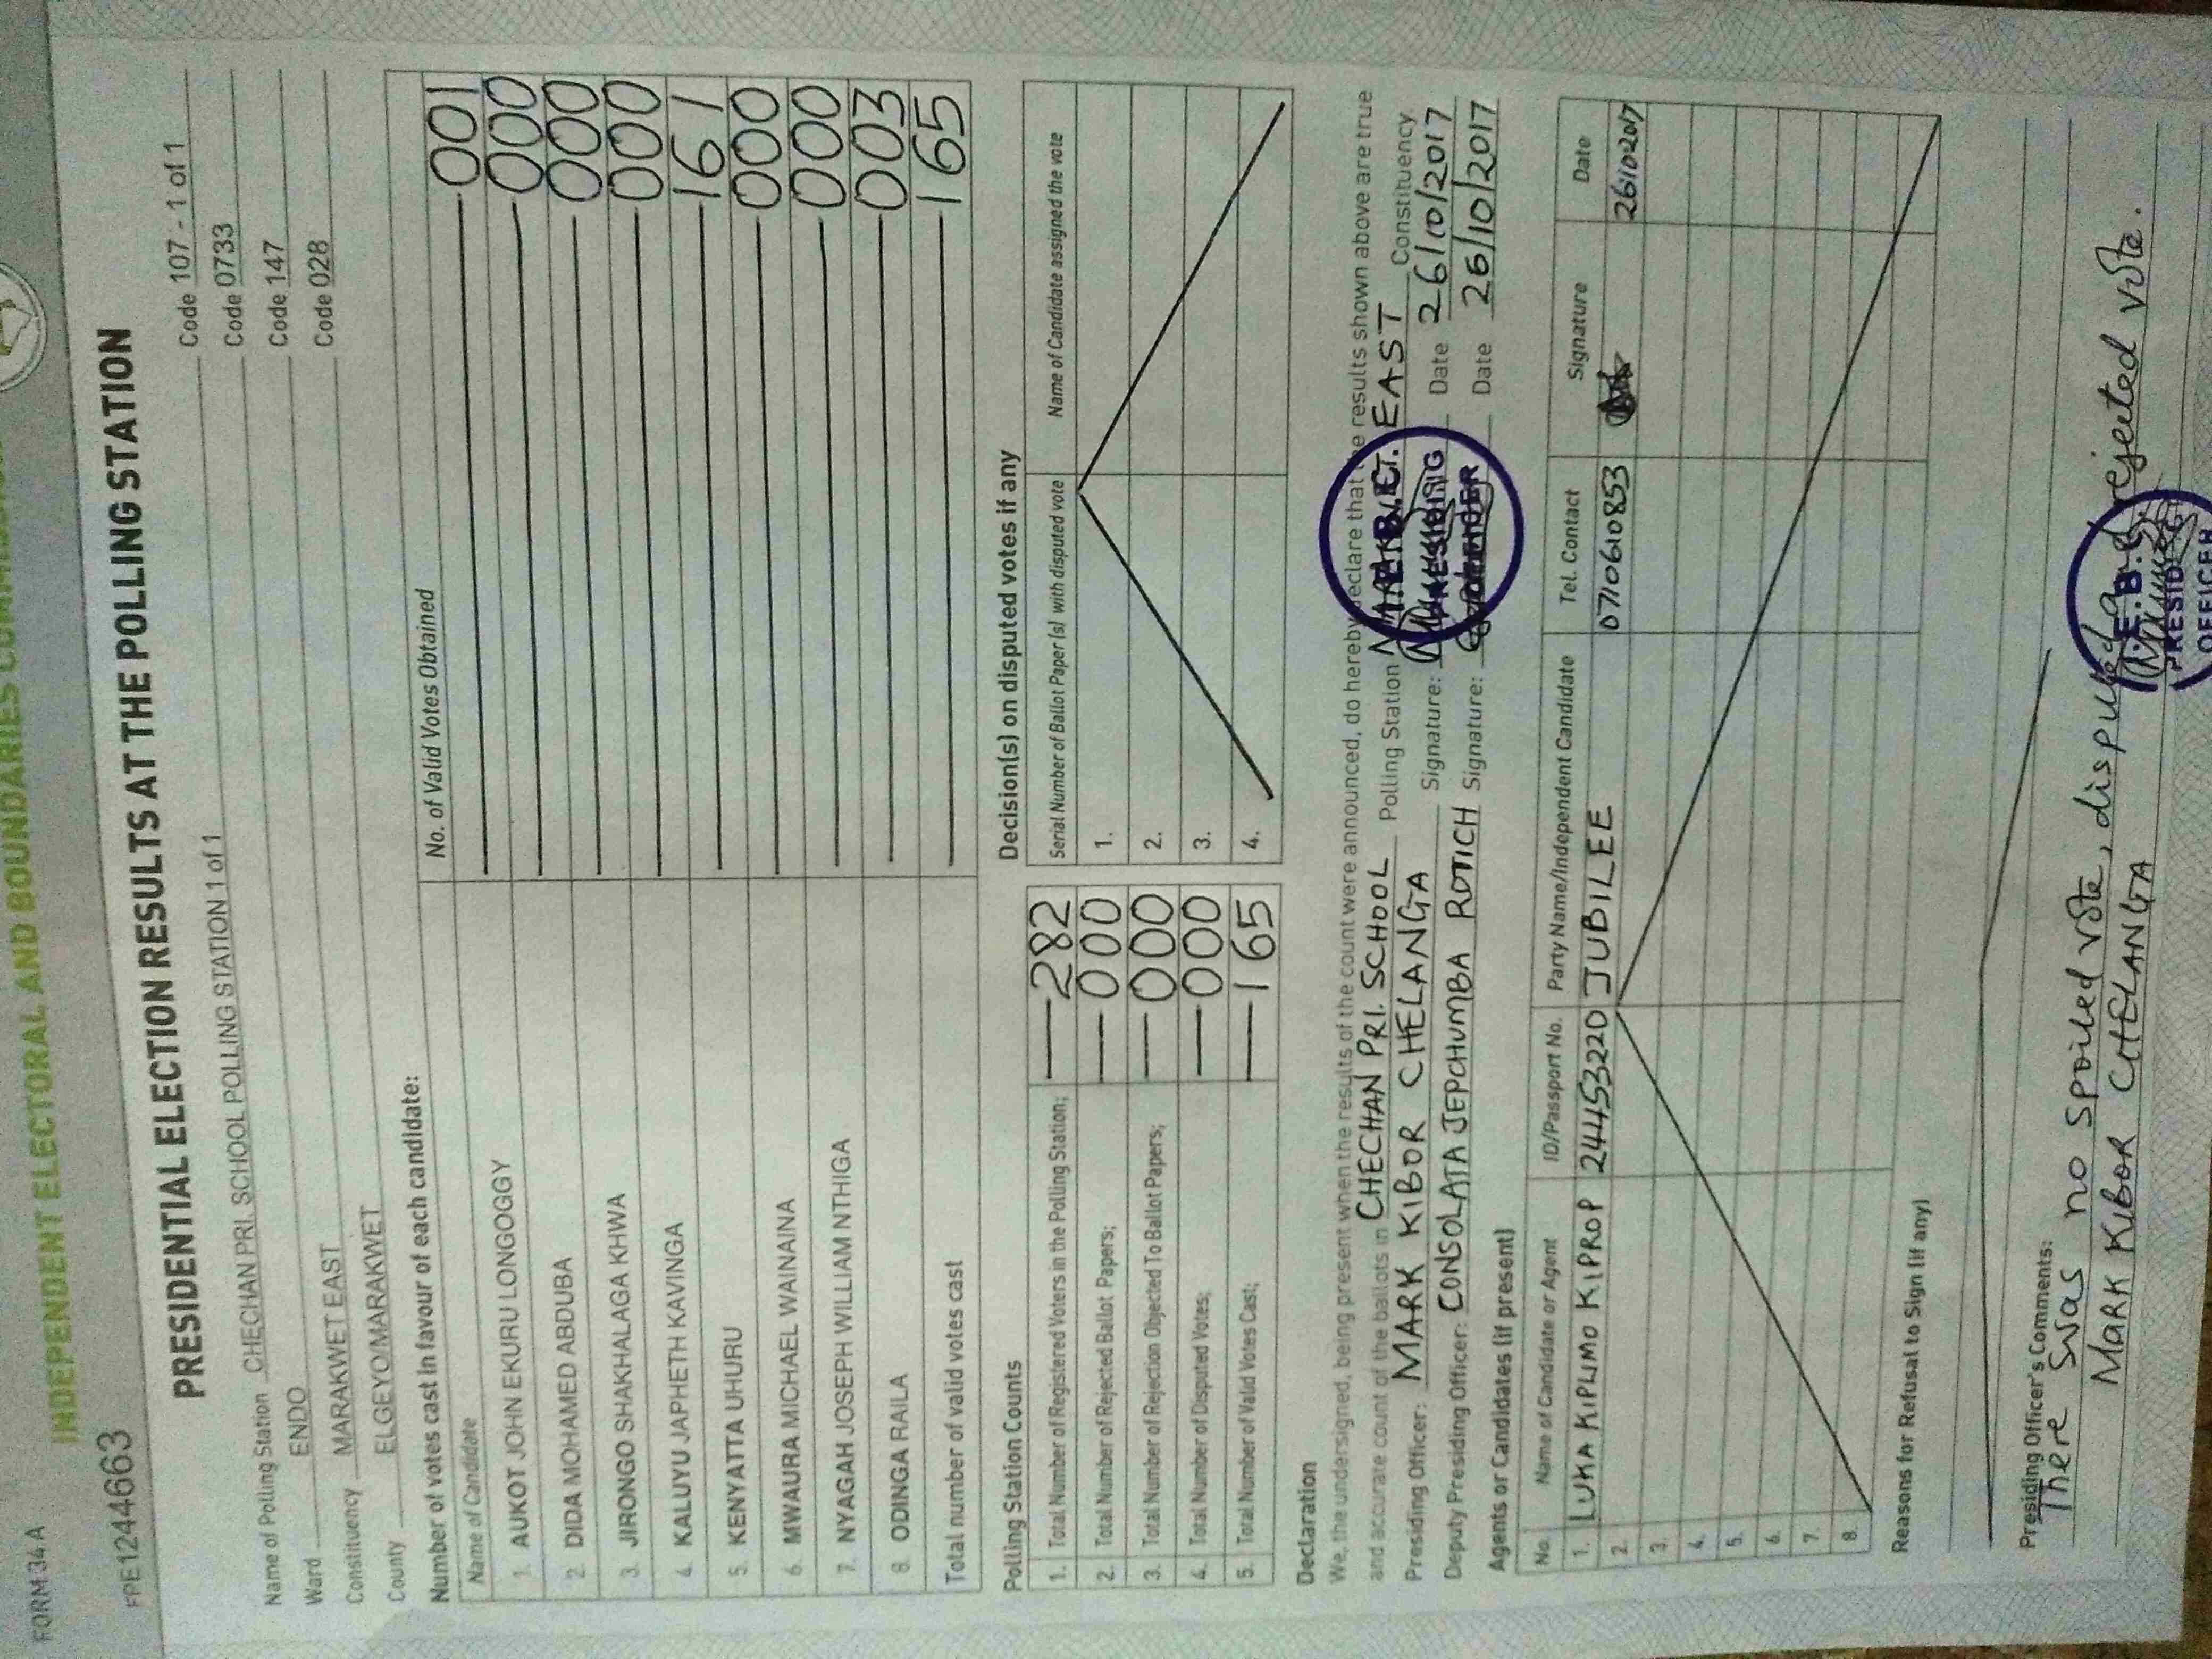 FORM 34A
INDEPENDENT ELECTORAL AND BOUNDARIES
FPE1244663
PRESIDENTIAL ELECTION RESULTS AT THE POLLING STATION
Name of Polling Station CHECHAN PRI. SCHOOL POLLING STATION 1 of 1 Code 107 - 1 of 1
Ward ENDO Code 0733
Constituency MARAKWET EAST Code 147
County ELGEYO/MARAKWET Code 028
Number of votes cast in favour of each candidate:
Name of Candidate No. of Valid Votes Obtained
1. AUKOT JOHN EKURU LONGOGGY 001
2. DIDA MOHAMED ABDUBA 000
3. JIRONGO SHAKHALAGA KHWA 000
4. KALUYU JAPHETH KAVINGA 000
5. KENYATTA UHURU 161
6. MWAURA MICHAEL WAINAINA 000
7. NYAGAH JOSEPH WILLIAM NTHIGA 000
8. ODINGA RAILA 003
Total number of valid votes cast 165
Polling Station Counts
1. Total Number of Registered Voters in the Polling Station; 282
2. Total Number of Rejected Ballot Papers; 000
3. Total Number of Rejection Objected To Ballot Papers; 000
4. Total Number of Disputed Votes; 000
5. Total Number of Valid Votes Cast; 165
Decision(s) on disputed votes if any
Serial Number of Ballot Paper (s) with disputed vote Name of Candidate assigned the vote
1.
2.
3.
4.
Declaration
We, the undersigned, being present when the results of the count were announced, do hereby declare that the results shown above are true
and accurate count of the ballots in CHECHAN PRI. SCHOOL Polling Station MARAKWET EAST Constituency.
Presiding Officer: MARK KIBOR CHELANGA Signature: Date 26/10/2017
Deputy Presiding Officer: CONSOLATA JEPCHUMBA ROTICH Signature: Date 26/10/2017
PRESIDING
Agents or Candidates (if present)
No. Name of Candidate or Agent ID/Passport No. Party Name/Independent Candidate Tel. Contact Signature Date
1. LUKA KIPLIMO KIPROP 24453220 JUBILEE 0710610853 26/10/2017
2.
3.
4.
5.
6.
7.
8.
Reasons for Refusal to Sign (if any)
Presiding Officer's Comments:
There was no spoiled vote, disputed and rejected vote.
MARK KIBOR CHELANGA
I.E.B.C
PRESIDING
OFFICER